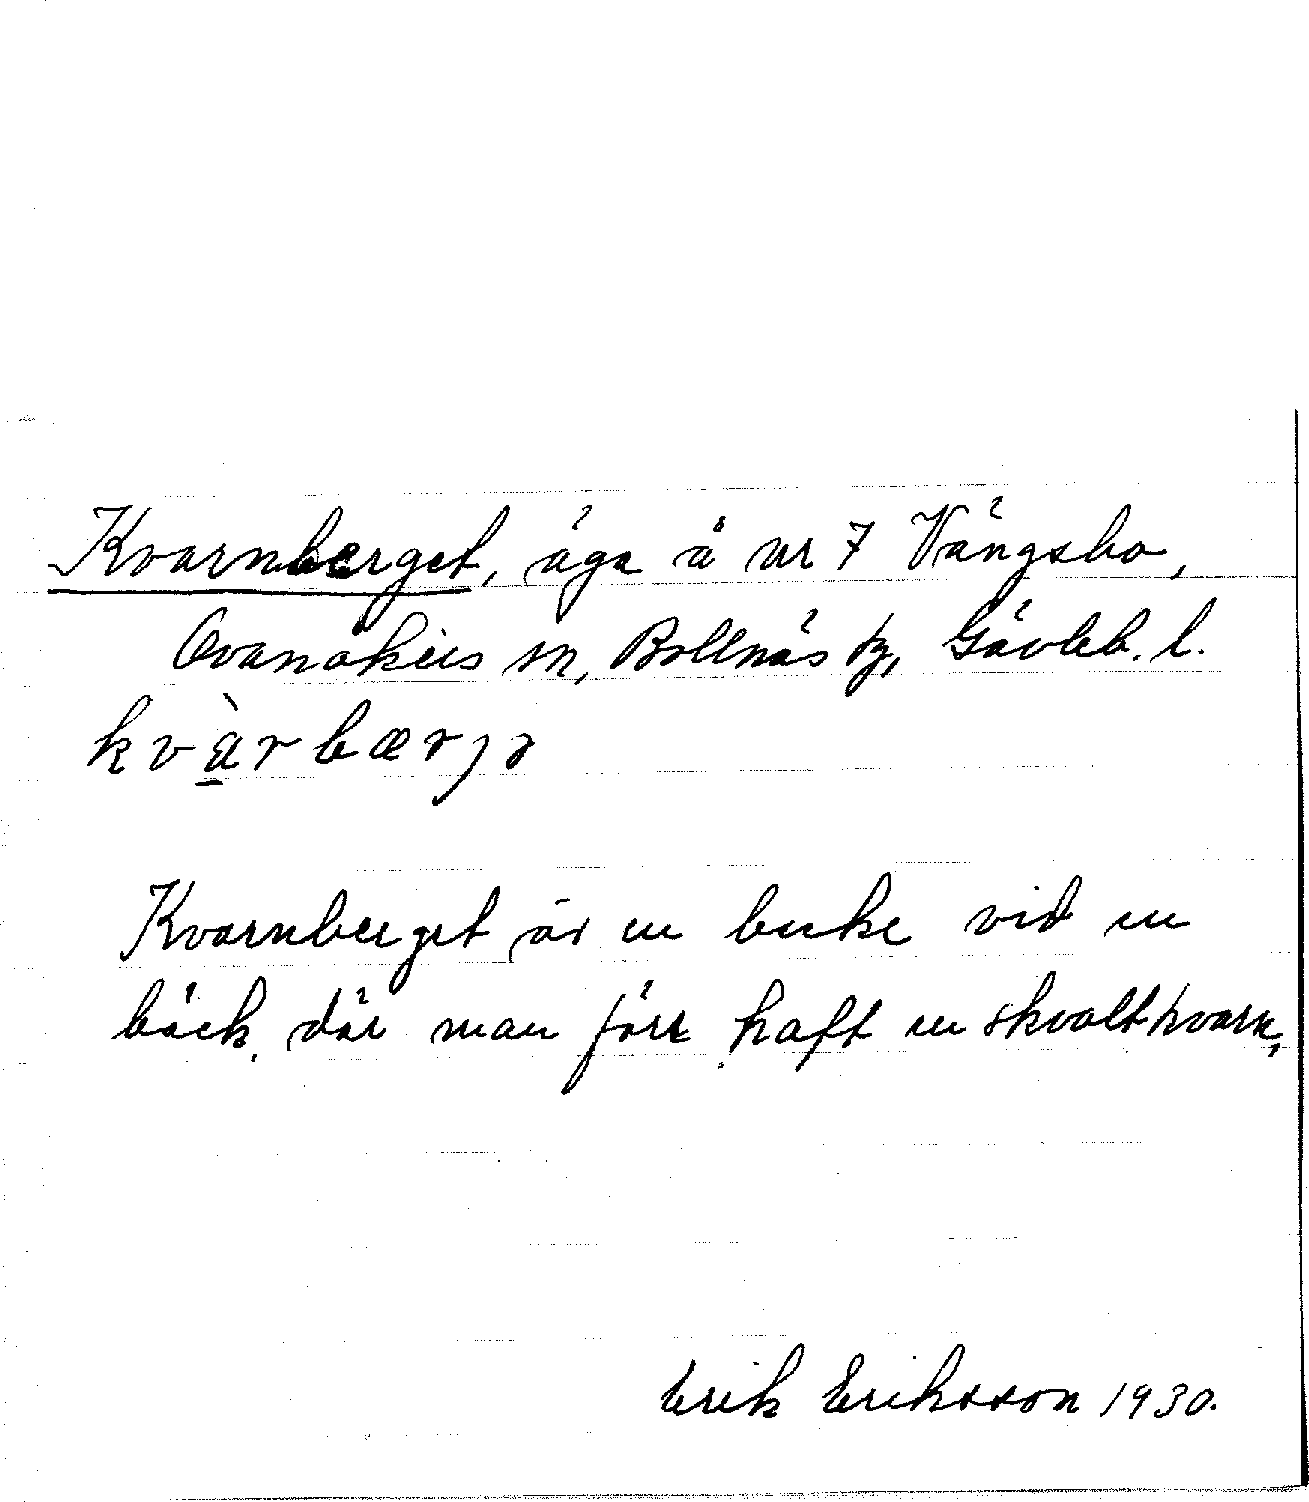 Kvarnberget, äga å nr 7 Vängsbo,
Ovanåkers sn, Bollnäs tg, Gävleb. l.
kvàrbærjə
Kvarnberget är en backe vid en
bäck, där man förr haft en skvaltkvarn.
Erik Eriksson 1930.